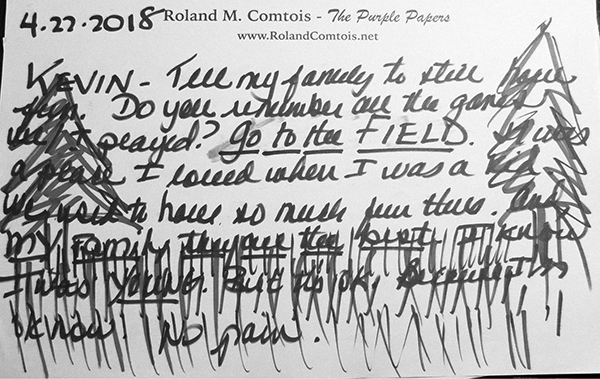 4.22.2018 Roland M. Comtois - The Purple Papers
www.RolandComtois.net
KEVIN - Tell my family to still have
fun. Do you remember all the games
we played? Go to the FIELD. It was
a place I loved when I was a kid
We used to have so much fun there. And
MY Family they are the best. I know
I was YOUNG. But its ok, Because I'm
know. No pain.